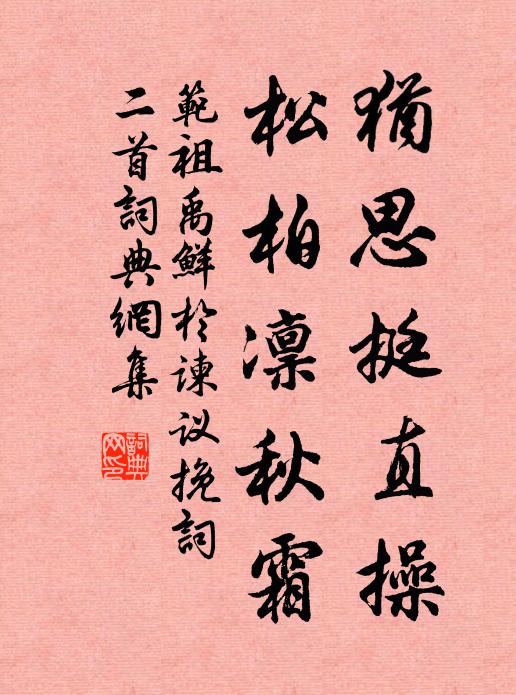 猶思挺直操
松柏凛秋霜
範祖禹鮮於諫议挽詞
二首詞典網集
詞典
网印